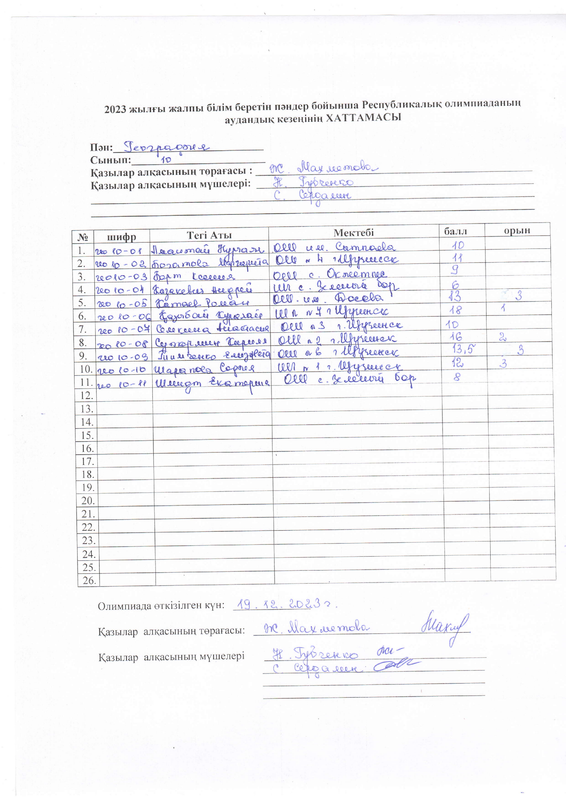 2023 жылғы жалпы білім беретін пәндер бойынша Республикалық олимпиаданың
аудандық кезеңінің ХАТТАМАСЫ
Пән: География
Сынып: 10
Қазылар алқасының төрағасы : Ж. Махметова
Қазылар алқасының мүшелері: Н. Губченко
С. Сердалин
№ шифр Тегі Аты Мектебі балл орын
1. гео 10-01 ОШ им. Сатпаева 10
2. гео 10-02 Богатова Маргарита ОШ н 4 г Щучинск 11
3. гео 10-03 Борт Ксения ОШ с. Окжетпес 9
4. гео 10-04 Казакевич Андрей ОШ с. Зеленый бор 6
5. гео 10-05 Катаев Роман ОШ им. Досова 13 3
6. гео 10-06 Қазабай Нұралай Ш н 7 г Щучинск 18 1
7. гео 10-07 Семкина Анастасия ОШ н 3 г. Щучинск 10
8. гео 10-08 Кирилл ОШ н 2 г. Щучинск 16 2
9. гео 10-09 Тимченко Елизавета ОШ н 6 г Щучинск 13,5 3
10. гео 10-10 Шарапова София ОШ н 1 г. Щучинск 12 3
11. гео 10-11 Шмидт Екатерина ОШ с. Зеленый бор 8
12.
13.
14.
15.
16.
17.
18.
19.
20.
21.
22.
23.
24.
25.
26.
Олимпиада өткізілген күн: 19.12.2023 г.
Қазылар алқасының төрағасы: Ж. Махметова
Қазылар алқасының мүшелері Н. Губченко
С Сердалин